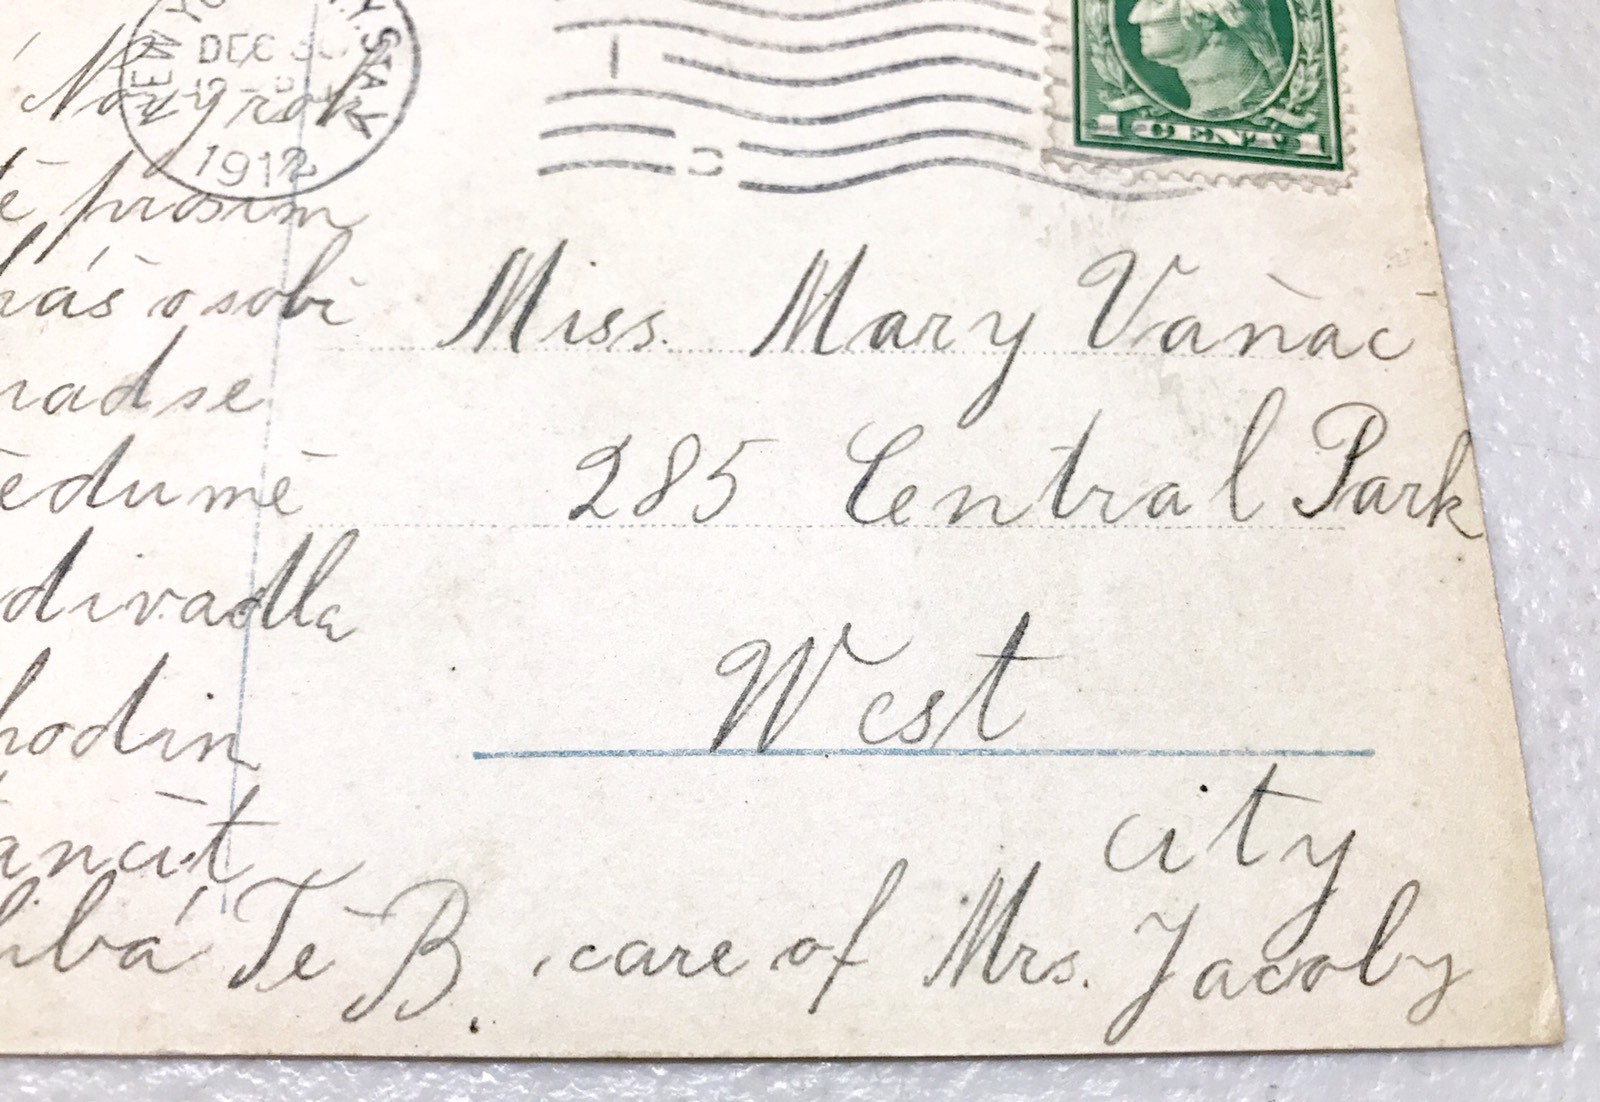 NEW YORK, N.Y. STA. Y
DEC 30
1912
1 CENT 1
Nový rok
tě prosím
náš osobi
nadse
ědumě
divadla
hodin
ančit
líbá Tě B.
Miss. Mary Vaňáč
285 Central Park
West
city
care of Mrs. Jacoby